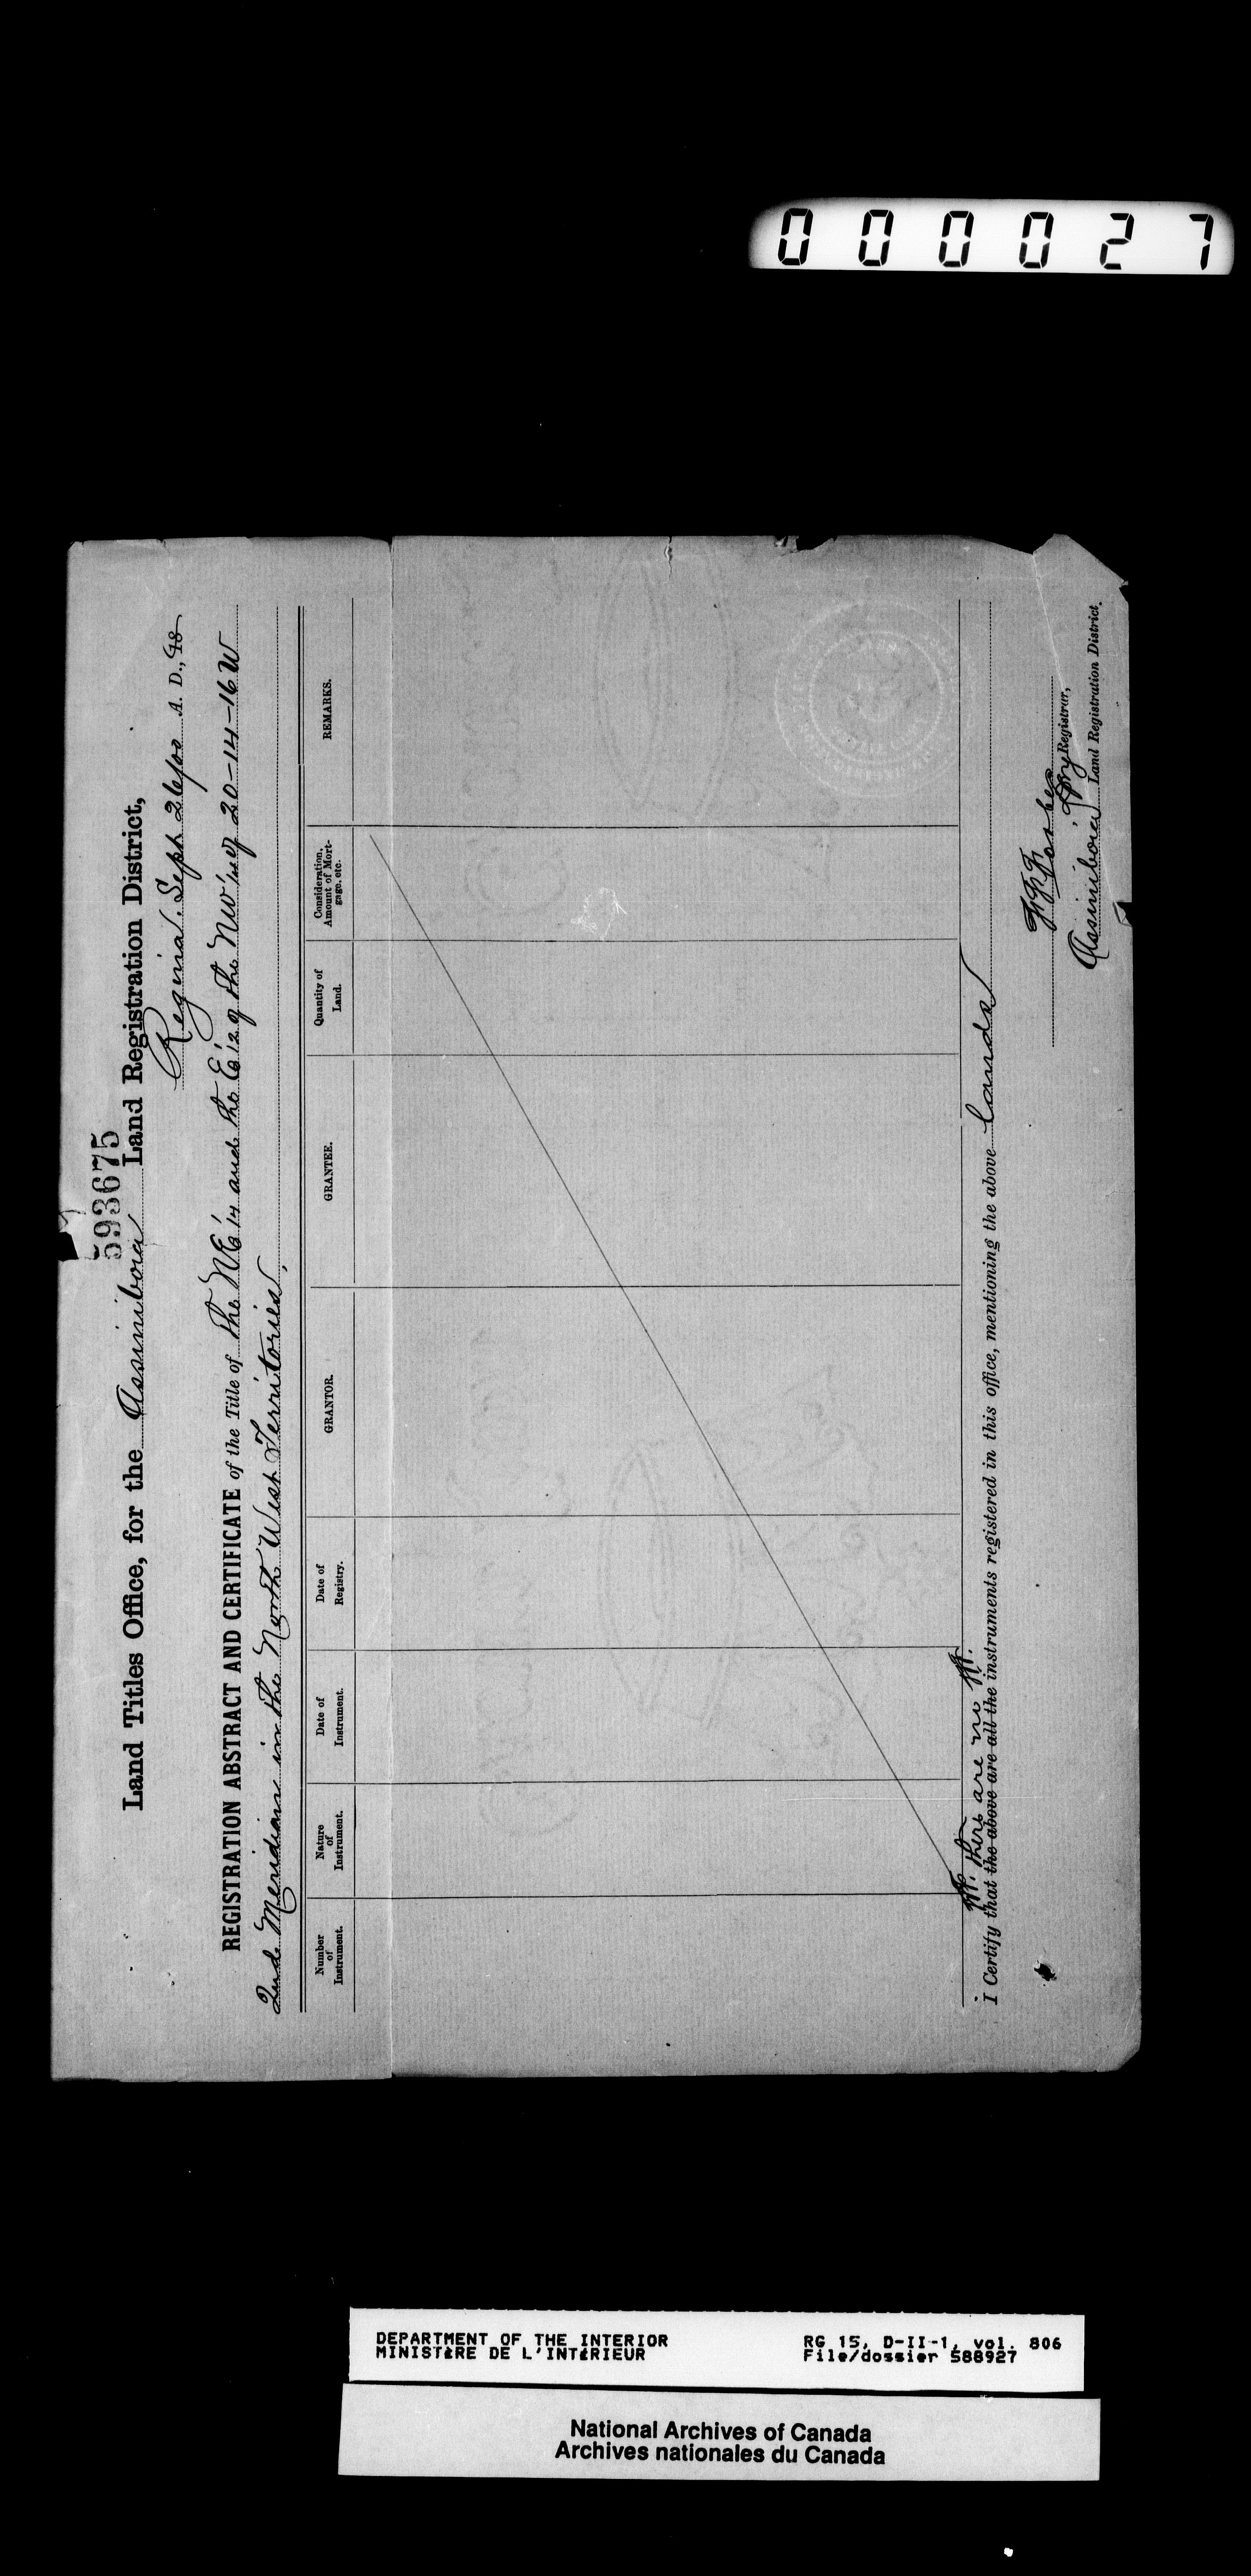 000027
593675
Land Titles Office, for the Assiniboia Land Registration District,
Regina Sept. 26/00 A. D., 18
REGISTRATION ABSTRACT AND CERTIFICATE of the Title of the NE 1/4 and the E 1/2 of the NW 1/4 of 20-14-16 W
2nd Meridian in the North West Territories,
Number of Instrument.
Nature of Instrument.
Date of Instrument.
Date of Registry.
GRANTOR.
GRANTEE.
Quantity of Land.
Consideration, Amount of Mortgage, etc.
REMARKS.
there are no
I Certify that the above are all the instruments registered in this office, mentioning the above lands
Forbes
Dpy Registrar,
Assiniboia Land Registration District.
DEPARTMENT OF THE INTERIOR
MINISTÈRE DE L'INTÉRIEUR
RG 15, D-II-1, vol. 806
File/dossier 588927
National Archives of Canada
Archives nationales du Canada